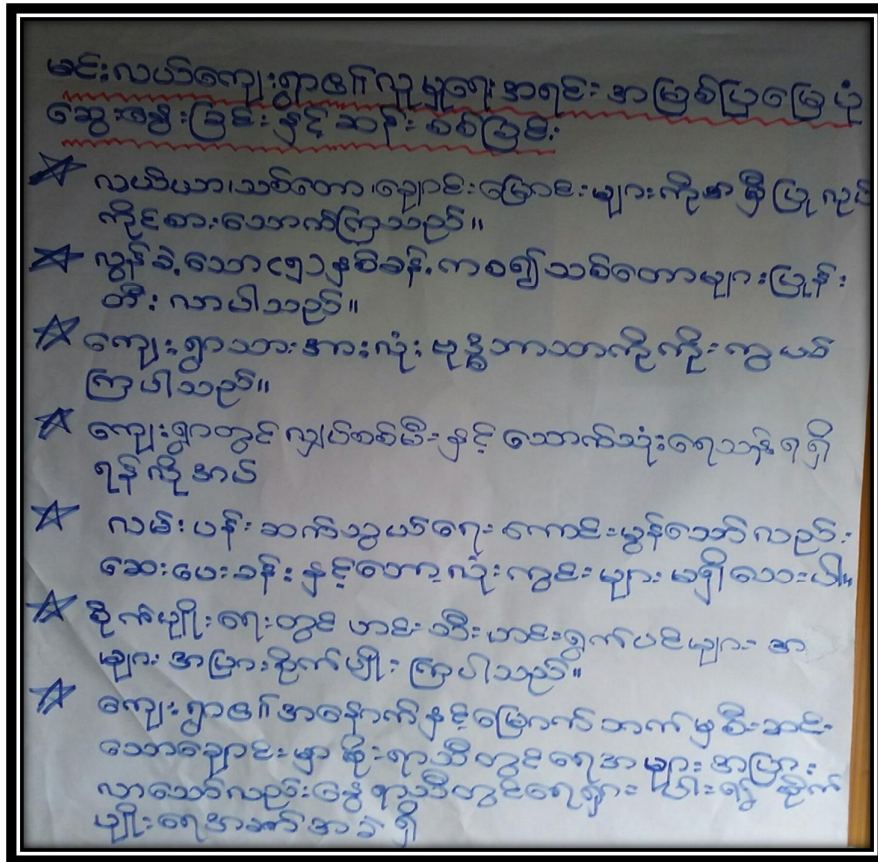 မင်းလယ်ကျေးရွာ၏လူမှုရေးအရင်းအမြစ်ပြမြေပုံ
ဆွေးနွေးခြင်းနှင့်ဆန်းစစ်ခြင်း
လယ်ယာ၊သစ်တော၊ချောင်းမြောင်းများကိုအမှီပြုလုပ်
ကိုင်စားသောက်ကြသည်။
လွန်ခဲ့သော၄၅၁နှစ်ခန့်ကစ၍သစ်တောများပြုန်း
တီးလာပါသည်။
ကျေးရွာသားအားလုံးဗုဒ္ဓဘာသာကိုကိုးကွယ်
ကြပါသည်။
ကျေးရွာတွင်လျှပ်စစ်မီးနှင့်သောက်သုံးရေသန့်ရရှိ
ရန်လိုအပ်
လမ်းပန်းဆက်သွယ်ရေးကောင်းမွန်သော်လည်း
ဆေးပေးခန်းနှင့်ဘောလုံးကွင်းများမရှိသေးပါ။
စိုက်ပျိုးရေးတွင်ဟင်းသီးဟင်းရွက်ပင်များအ
များအပြားစိုက်ပျိုးကြပါသည်။
ကျေးရွာ၏အနောက်နှင့်မြောက်ဘက်မှစီးဆင်း
သောချောင်းမှာမိုးရာသီတွင်ရေအများအပြား
လာသော်လည်းနွေရာသီတွင်ရေရှားပါး၍စိုက်
ပျိုးရေအခက်အခဲရှိ